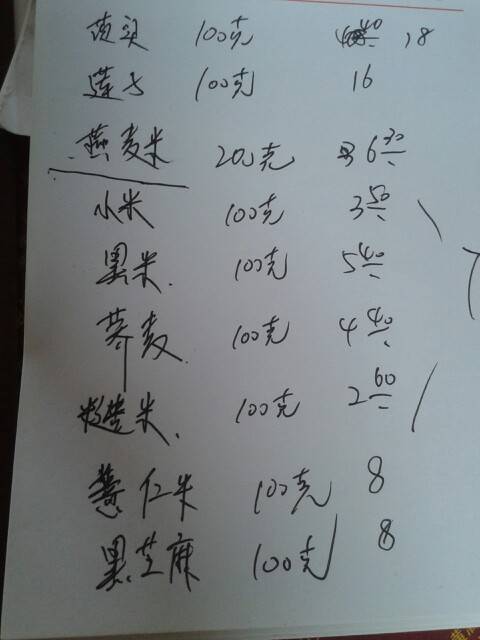 100克 18
莲子 100克 16
燕麦米 200克 6.30
小米 100克 3.50
黑米. 100克 5.40
荞麦. 100克 4.40
糙米. 100克 2.60
薏仁米 100克 8
黑芝麻 100克 8